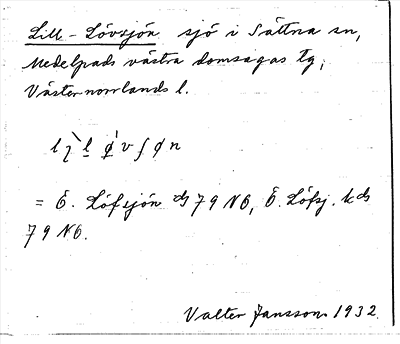 Lill-Lövsjön sjö i Sättna sn,
Medelpads västra domsagas tg,
Västernorrlands l.
= Ö. Löfsjön ds 79 NO, Ö. Löfsj. kds
79 NO.
Valter Jansson 1932.